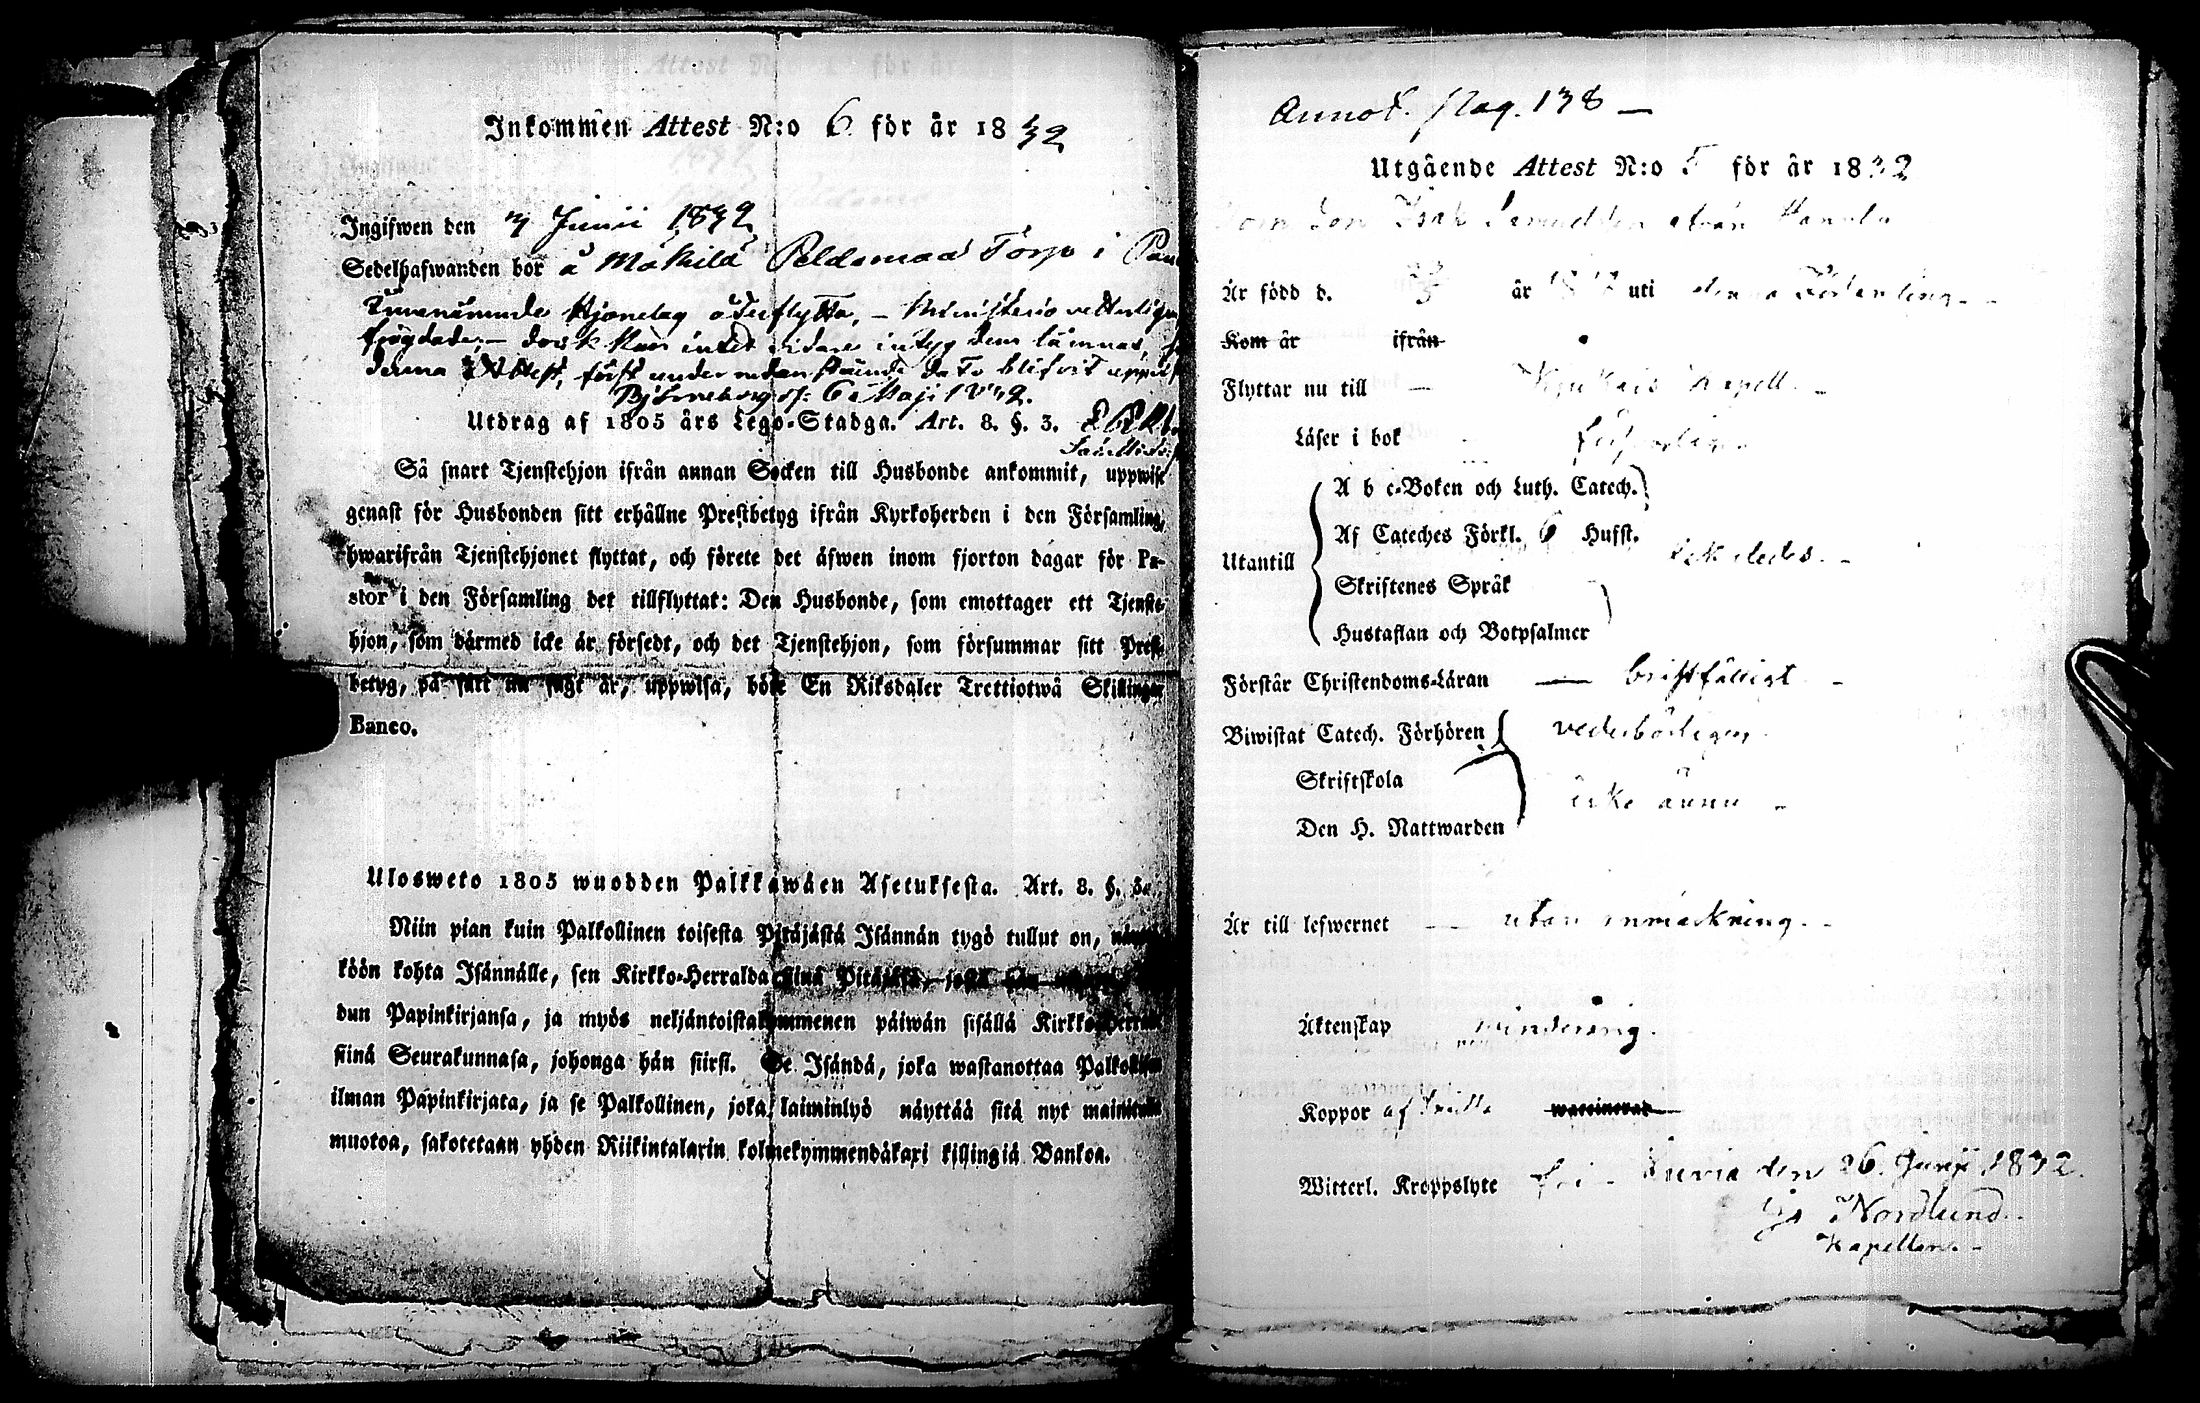 Inkommen Attest N:o 6 för år 1832
Ingifwen den 7 Junii 1832
Sedelhafwanden bor å Mäkilä Peldomaa Torp i
Hjonelag återflytta, – Ministerio vetterligen
dock kan intet vidare intyg dem lämnas,
denna Attest, först under nedanstående dato blifvit
Björneborg d. 6 Maji 1832.
Utdrag af 1805 års Lego-Stadga. Art. 8. §. 3.
Så snart Tjenstehjon ifrån annan Socken till Husbonde ankommit, uppwise
genast för Husbonden sitt erhållne Prestbetyg ifrån Kyrkoherden i den Församling,
hwarifrån Tjenstehjonet flyttat, och förete det äfwen inom fjorton dagar för Pa-
stor i den Församling det tillflyttat: Den Husbonde, som emottager ett Tjenste-
hjon, som därmed icke är försedt, och det Tjenstehjon, som försummar sitt Prest-
betyg, på sätt nu sagt är, uppwisa, böte En Riksdaler Trettiotwå Skillingar
Banco.
Ulosweto 1805 wuodden Palkkawäen Asetuksesta. Art. 8. §. 3.
Niin pian kuin Palkollinen toisesta Pitäjästä Isännän tygö tullut on,
köön kohta Isännälle, sen Kirkko-Herralda siinä Pitäjäsä, josta hän
dun Papinkirjansa, ja myös neljäntoistakymmenen päiwän sisällä Kirkko-Herran
siinä Seurakunnasa, johonga hän siirsi. Se Isändä, joka wastanottaa Palkollisen
ilman Papinkirjata, ja se Palkollinen, joka laiminlyö näyttää sitä nyt mainitulla
muotoa, sakotetaan yhden Riikintalarin kolmekymmendäkaxi killingiä Bankoa.
Annot. pag. 138 –
Utgående Attest N:o 5 för år 1832
Isak
Är född d. år uti denna Församling. –
Kom år ifrån
Flyttar nu till – Kapell. –
Läser i bok
A b c-Boken och Luth. Catech.
Af Cateches Förkl. 6 Hufst.
Utantill likaledes. –
Skriftenes Språk
Hustaflan och Botpsalmer
Förstår Christendoms-Läran – bristfälligt –
Biwistat Catech. Förhören vederbörligen
Skriftskola
icke ännu –
Den H. Nattwarden
Är till lefwernet – utan anmärkning. –
Äktenskap minderårig.
Koppor af waccinerad
Witterl. Kroppslyte fri – Luvia den 26. Junii 1832.
Nordlund.
Kapellan. –